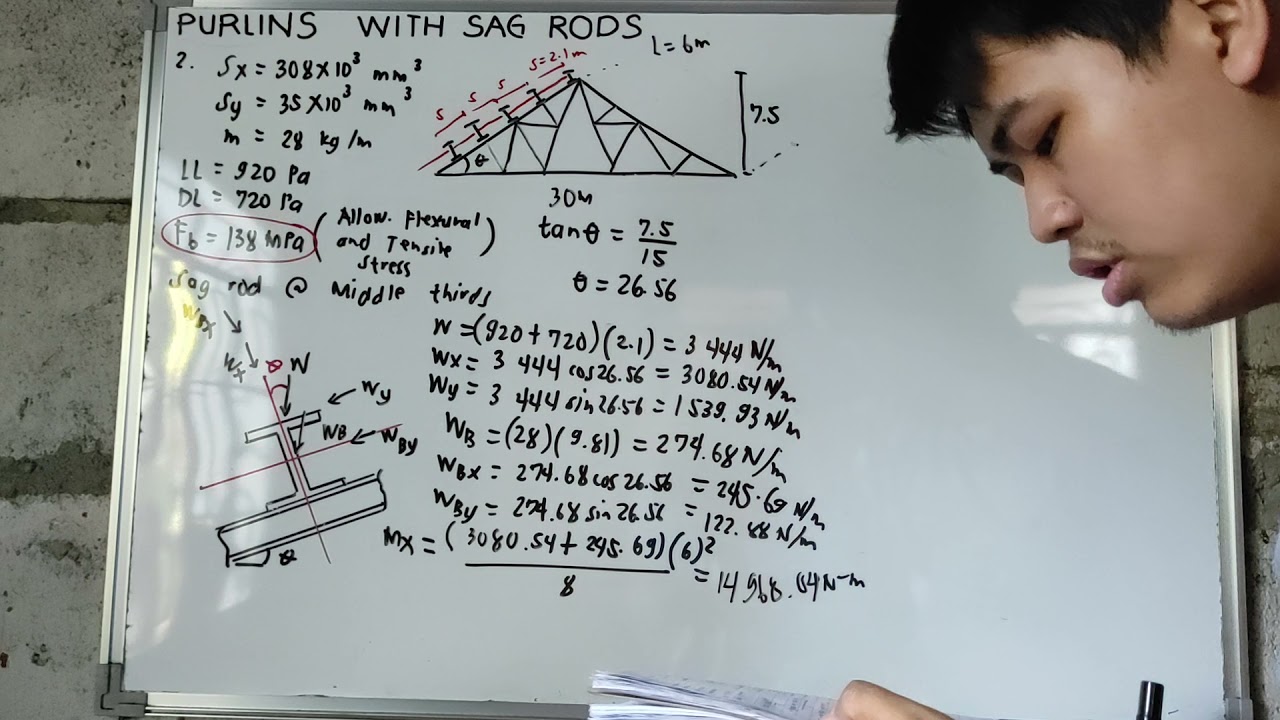 PURLINS WITH SAG RODS
L = 6m
2. Sx = 308 x 10³ mm³
Sy = 35 x 10³ mm³
m = 28 kg/m
LL = 920 Pa
DL = 720 Pa
Fb = 138 MPa (Allow. Flexural and Tensile Stress)
Sag rod @ Middle thirds
S S S S=2.1m
θ
7.5
30m
tanθ = 7.5/15
θ = 26.56
W = (920 + 720)(2.1) = 3 444 N/m
Wx = 3 444 cos 26.56 = 3080.54 N/m
Wy = 3 444 sin 26.56 = 1539.93 N/m
WB = (28)(9.81) = 274.68 N/m
WBx = 274.68 cos 26.56 = 245.69 N/m
WBy = 274.68 sin 26.56 = 122.88 N/m
Mx = (3080.54 + 245.69)(6)² / 8 = 14 968.04 N-m
WBx
Wx θ W
Wy
WB WBy
θ